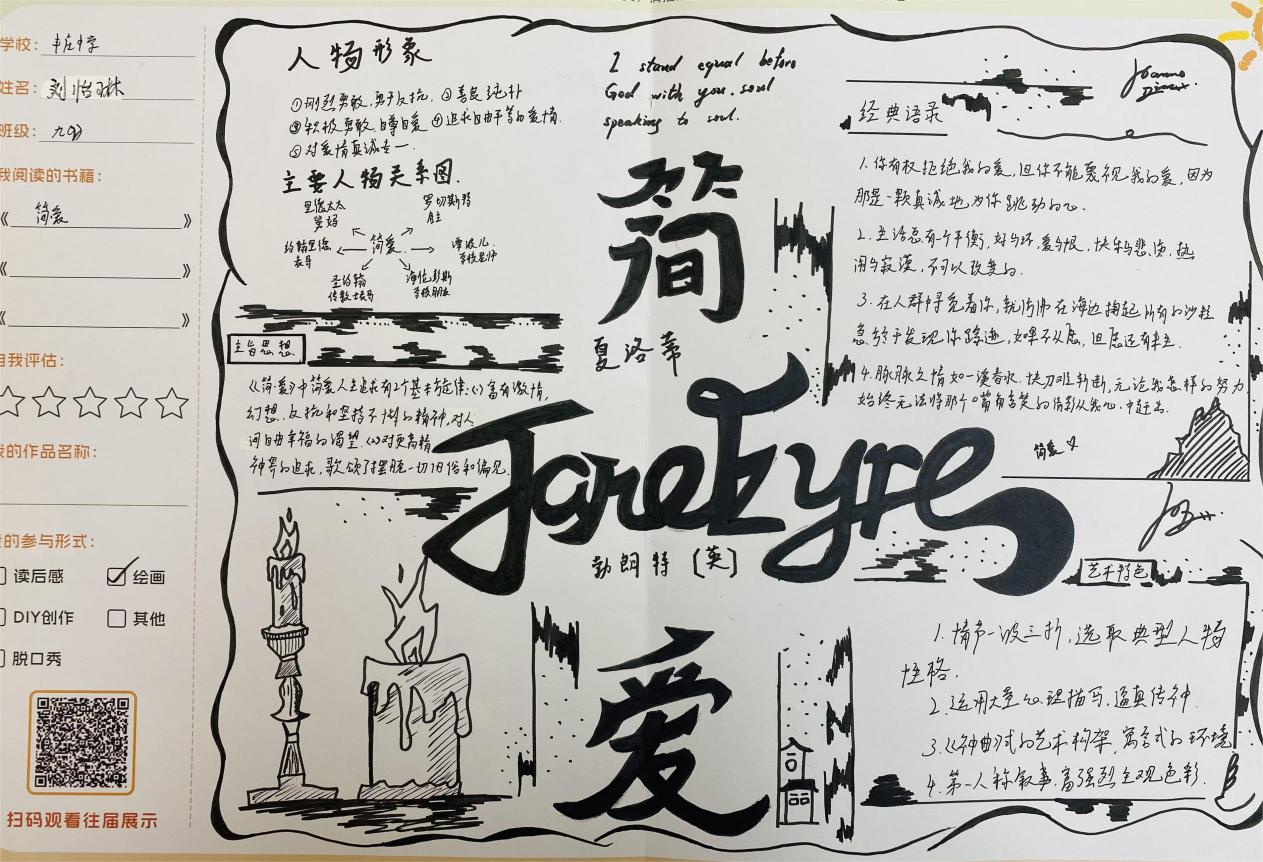 学校：
姓名：刘怡琳
班级：
我阅读的书籍：
《简爱》
《》
《》
自我评估：
我的作品名称：
我的参与形式：
读后感 绘画
DIY创作 其他
脱口秀
扫码观看往届展示
人物形象
①刚烈勇敢,勇于反抗. ②善良纯朴
③积极勇敢.自尊自爱 ④追求自由平等的爱情.
⑤对爱情真诚专一.
主要人物关系图.
里德太太 罗切斯特
舅妈 雇主
约翰里德 简爱 谭波儿
表哥 学校老师
圣约翰 海伦彭斯
传教士表哥 学校朋友
主旨思想
《简·爱》中简爱人生追求有2个基本旋律:(1)富有激情,
幻想、反抗和坚持不懈的精神,对人
间自由幸福的渴望.(2)对更高精
神界的追求,歌颂了摆脱一切旧俗和偏见.
I stand equal before
God with you.soul
speaking to soul.
简
夏洛蒂
JaneEyre
勃朗特〔英〕
爱
经典语录
1.你有权拒绝我的爱,但你不能蔑视我的爱,因为
那是一颗真诚地为你跳动的心.
2.生活总有一个平衡,好与坏,爱与恨,快乐与悲伤,热
闹与寂寞,不可以改变的.
3.在人群中寻觅着你,就仿佛在海边掬起所有的沙粒
急于发现你踪迹,如果不从愿,但愿还有来生.
4.脉脉之情如一溪春水.快刀难斩断,无论我怎样的努力
始终无法将那个嘴角含笑的倩影从我心中赶出.
简爱
艺术特色
1.情节一波三折,选取典型人物
性格.
2.运用大量心理描写,逼真传神.
3.《神曲》式的艺术构架,寓言式的环境
4.第一人称叙事,富强烈主观色彩.